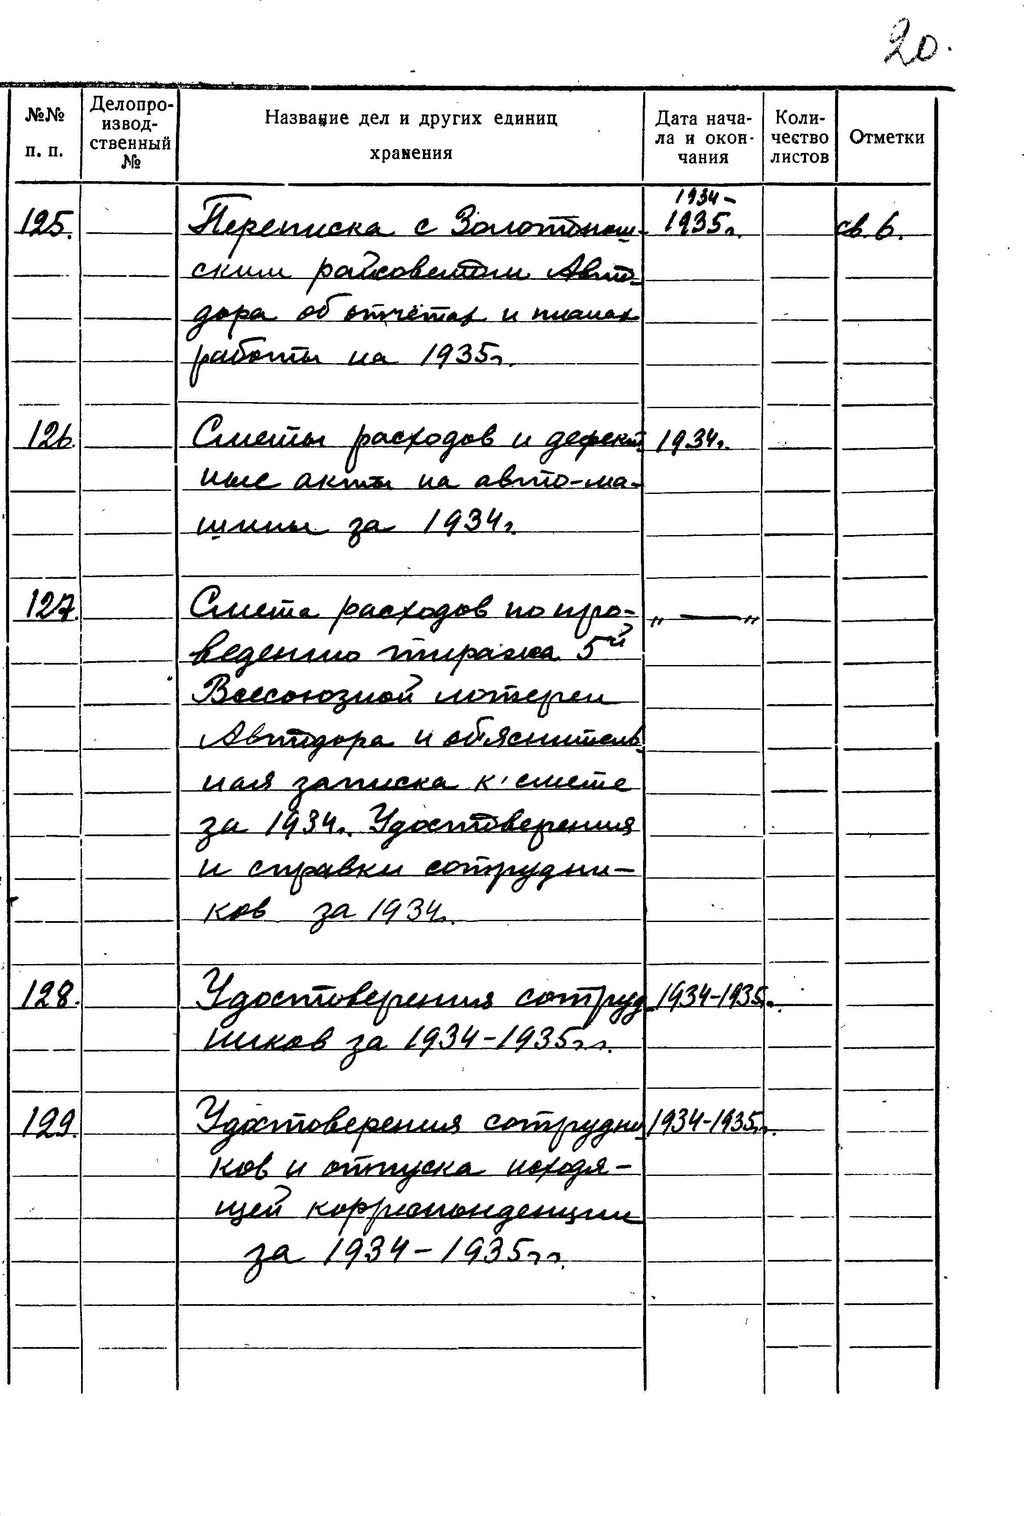 20.
№№ п. п.
Делопро-
извод-
ственный
№
Название дел и других единиц
хранения
Дата нача-
ла и окон-
чания
Коли-
чество
листов
Отметки
125. Переписка с Золотонош- 1934- 1935г. св. 6.
ским райсоветом Авто-
дора об отчётах и планах
работы на 1935г.
126. Сметы расходов и дефект 1934г.
ные акты на авто-ма-
шины за 1934г.
127. Смета расходов по про- „ — „
ведению тиража 5й
Всесоюзной лотереи
Автодора и объяснитель
ная записка к смете
за 1934г. Удостоверения
и справки сотрудни-
ков за 1934г.
128. Удостоверения сотруд 1934-1935г.
ников за 1934-1935гг.
129. Удостоверения сотрудни 1934-1935гг.
ков и отпуска исходя-
щей корреспонденции
за 1934-1935гг.